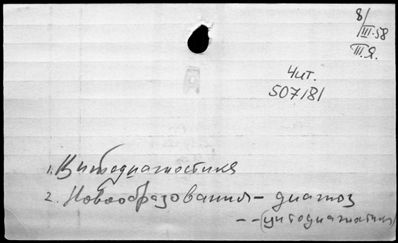 8/III-58
III.Я.
Чит.
507181
1. Цитодиагностика
2. Новообразования - диагноз
- - (цитодиагностика)